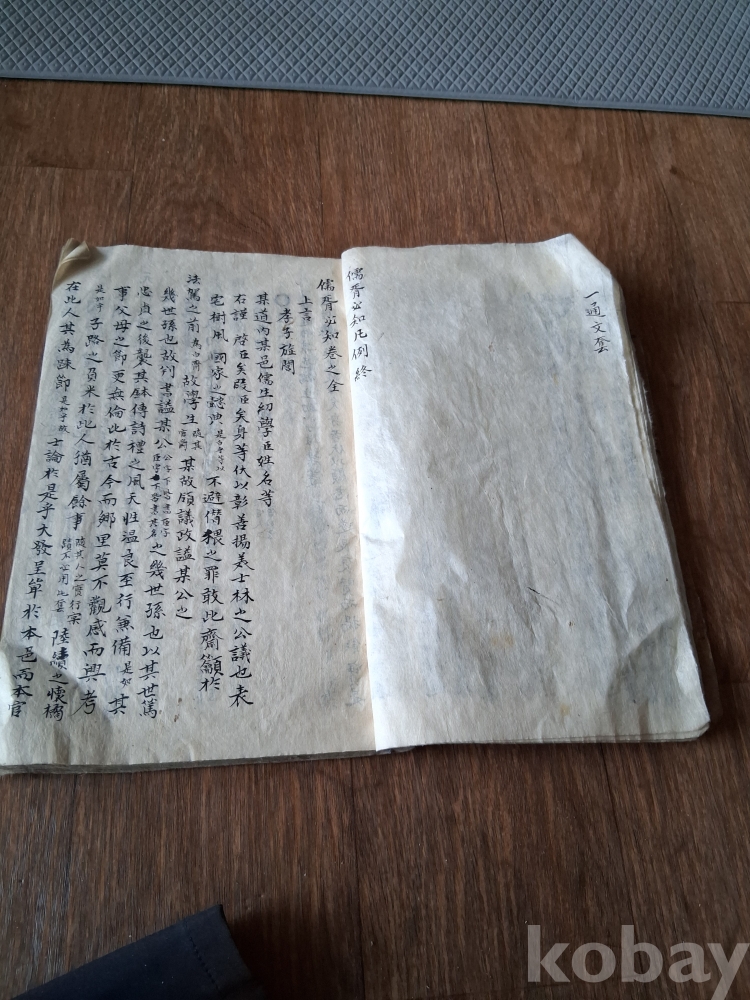 一通文套
儒胥必知凡例終
儒胥必知卷之全
上言
孝子旌閭
某道內某邑儒生幼學臣姓名等
右謹 啓臣矣段臣矣身等伏以彰善揚美士林之公議也表
宅樹風 國家之懿典 不避僭猥之罪敢此齊籲於
法駕之前 故學生 某故領議政謚某公之
幾世孫也故判書謚某公 之幾世孫也以其世篤
忠貞之後襲其詩禮之風天性溫良至行兼備 其
事父母之節更無倫比於古今而鄉里莫不觀感而興考
子路之負米於此人猶屬餘事 陸績之懷橘
在此人其為踈節 士論於是乎大發呈單於本邑而本官
kobay